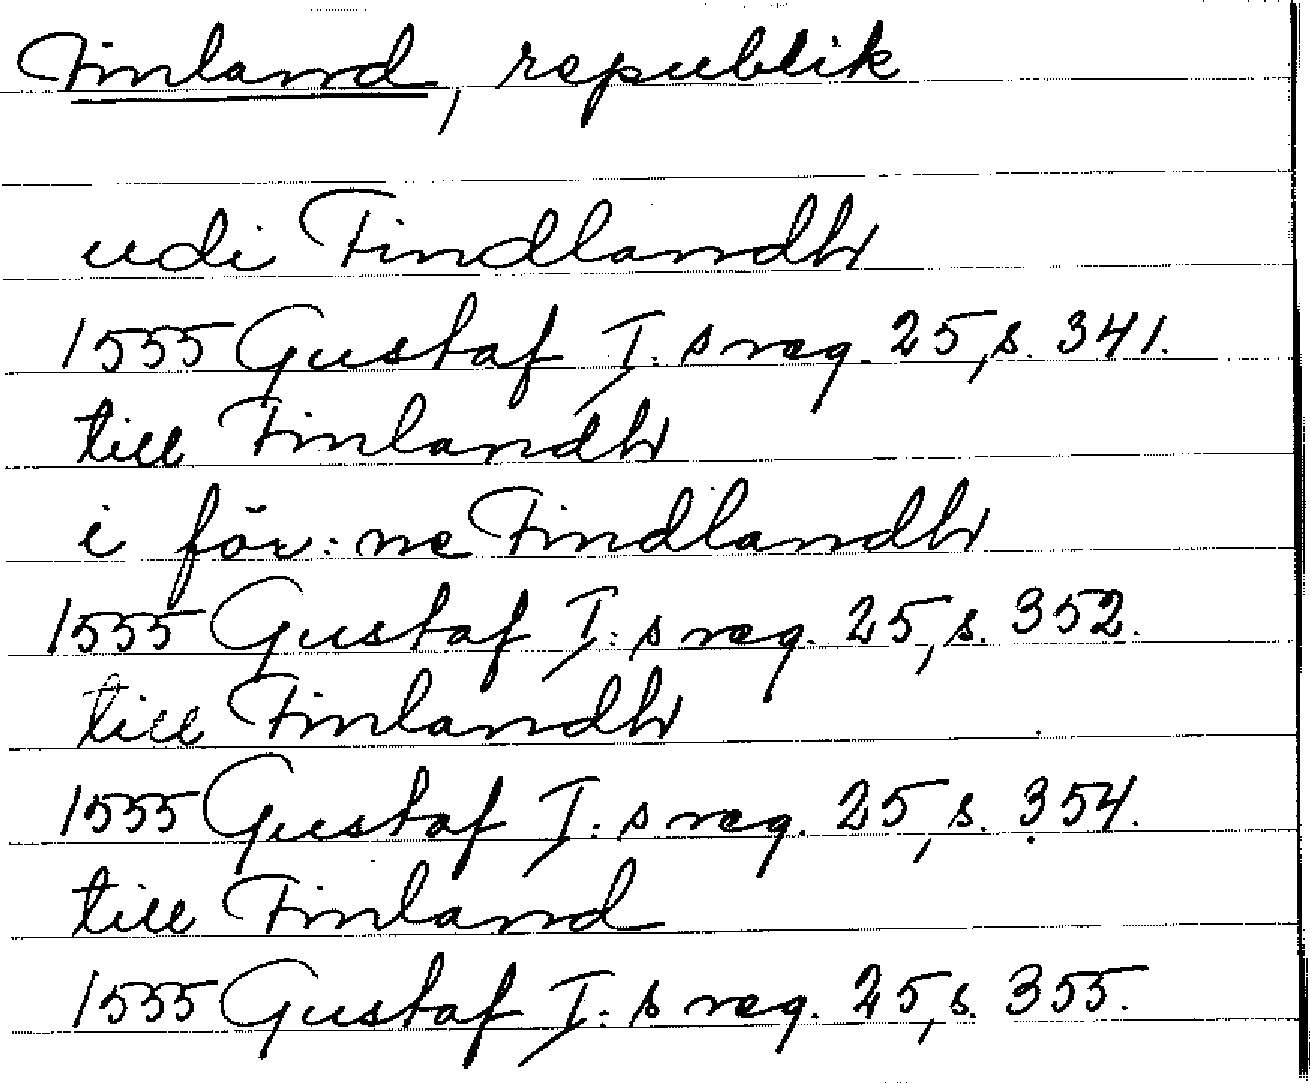 Finland, republik
udi Findlandh
1555 Gustaf I:s reg. 25, s. 341.
till Finlandh
i för:ne Findlandh
1555 Gustaf I:s reg. 25, s. 352.
till Finlandh
1555 Gustaf I:s reg. 25, s. 354.
till Finland
1555 Gustaf I:s reg. 25, s. 355.